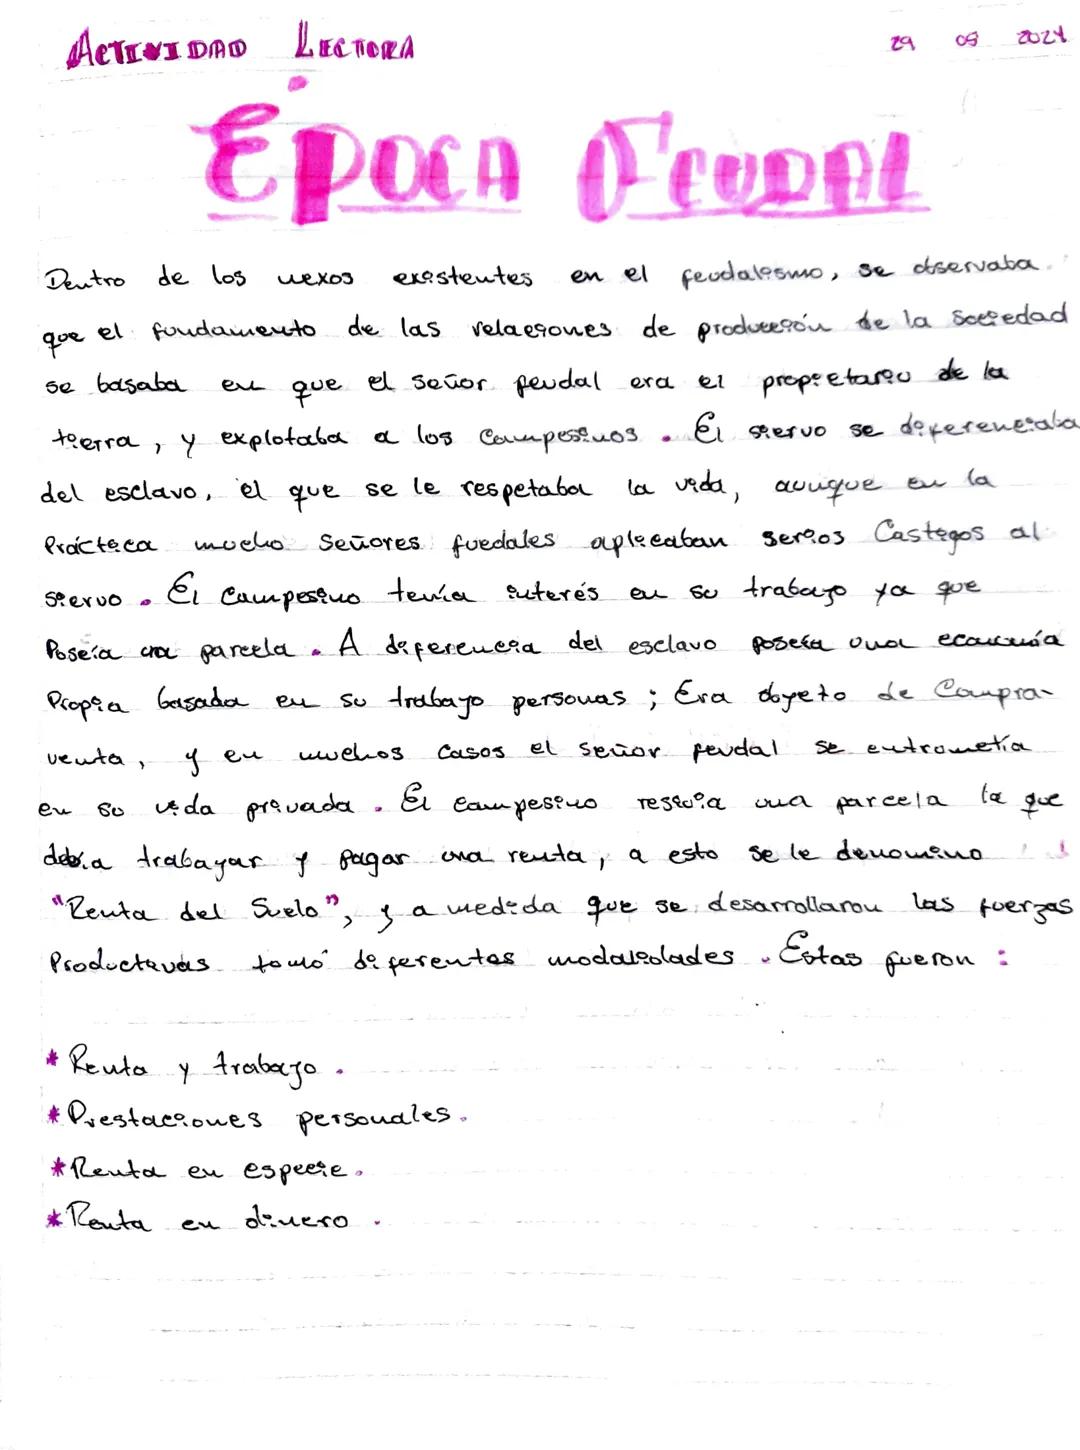 ACTIVIDAD LECTORA 29 05 2024
ÉPOCA FEUDAL
Dentro de los nexos existentes en el feudalismo, se observaba
que el fundamento de las relaciones de producción de la Sociedad
se basaba en que el señor feudal era el propietario de la
tierra, y explotaba a los campesinos. El siervo se diferenciaba
del esclavo, el que se le respetaba la vida, aunque en la
Práctica mucho Señores fuedales aplicaban serios Castigos al
siervo. El Campesino tenía interés en su trabajo ya que
Poseía una parcela. A diferencia del esclavo poseía una economía
Propia basada en su trabajo personas; Era objeto de Compra-
venta, y en muchos casos el señor feudal se entrometía
en su vida privada. El campesino una parcela la que
debía trabajar y pagar una renta, a esto se le denomino
"Renta del Suelo", y a medida que se desarrollaron las fuerzas
Productivas tomó diferentes modalidades. Estas fueron :
* Renta y trabajo.
* Prestaciones personales.
* Renta en especie.
* Renta en dinero.